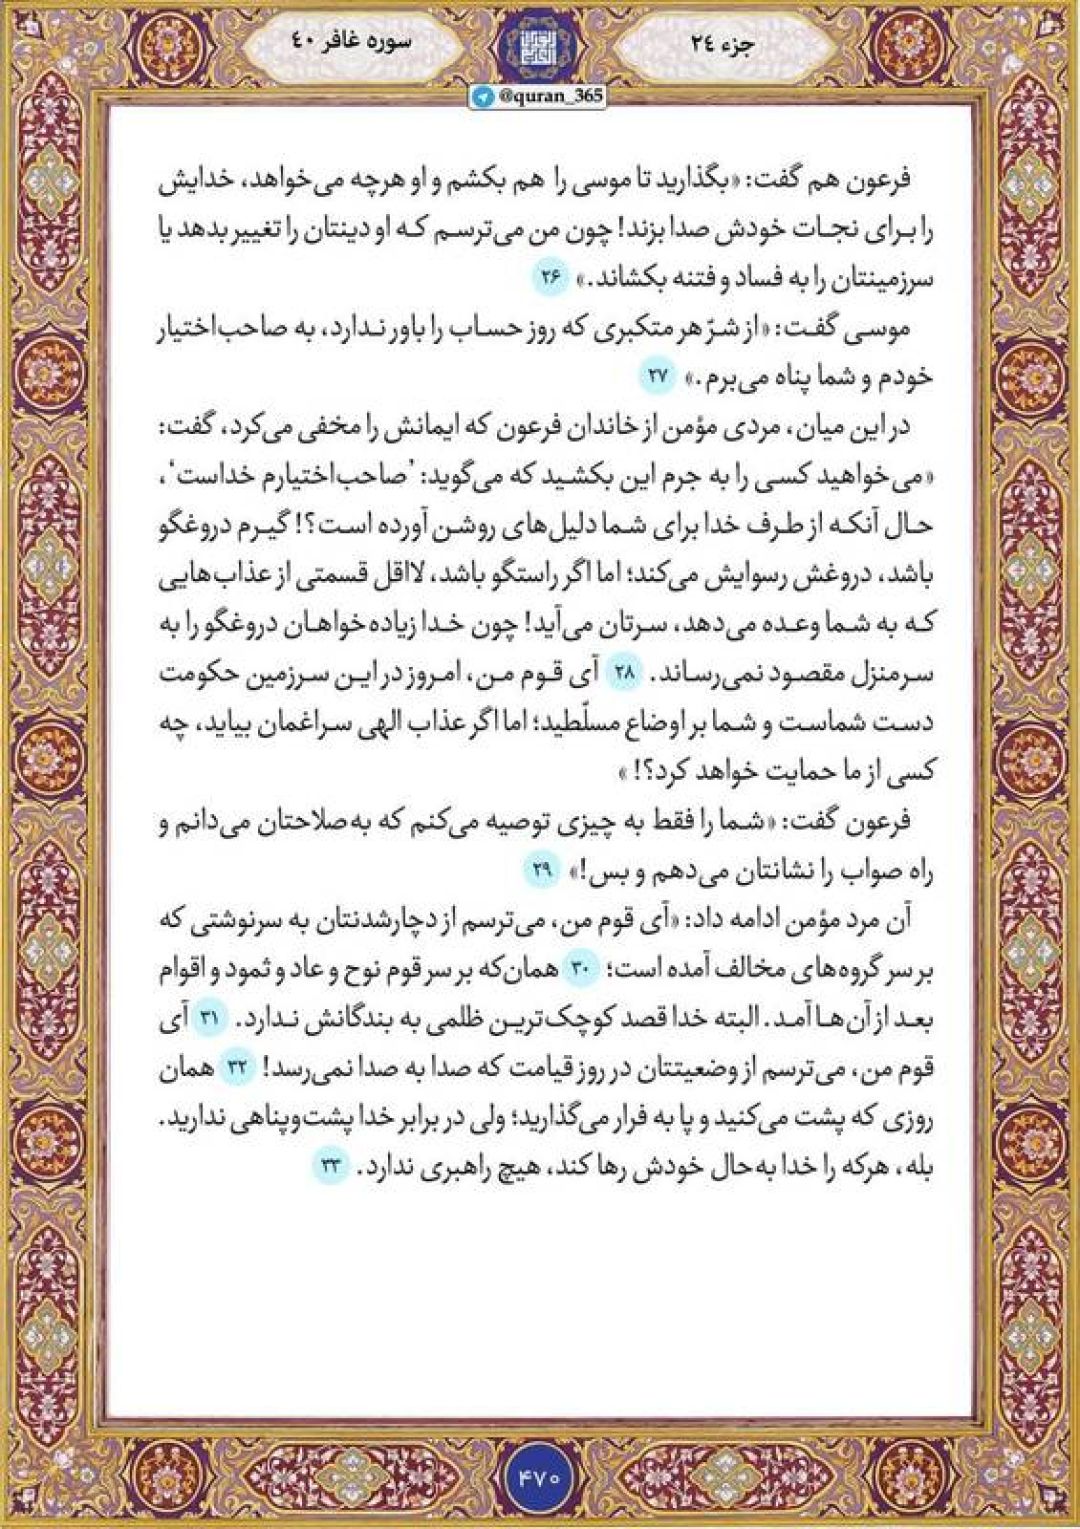 جزء ۲۴
سوره غافر ۴۰
@quran_365
فرعون هم گفت: «بگذارید تا موسی را هم بکشم و او هرچه می‌خواهد، خدایش
را برای نجات خودش صدا بزند! چون من می‌ترسم که او دینتان را تغییر بدهد یا
سرزمینتان را به فساد و فتنه بکشاند.» ۲۶
موسی گفت: «از شرّ هر متکبری که روز حساب را باور ندارد، به صاحب‌اختیار
خودم و شما پناه می‌برم.» ۲۷
در این میان، مردی مؤمن از خاندان فرعون که ایمانش را مخفی می‌کرد، گفت:
«می‌خواهید کسی را به جرم این بکشید که می‌گوید: ’صاحب‌اختیارم خداست‘،
حال آنکه از طرف خدا برای شما دلیل‌های روشن آورده است؟! گیرم دروغگو
باشد، دروغش رسوایش می‌کند؛ اما اگر راستگو باشد، لااقل قسمتی از عذاب‌هایی
که به شما وعده می‌دهد، سرتان می‌آید! چون خدا زیاده‌خواهان دروغگو را به
سرمنزل مقصود نمی‌رساند. ۲۸ آی قوم من، امروز در این سرزمین حکومت
دست شماست و شما بر اوضاع مسلّطید؛ اما اگر عذاب الهی سراغمان بیاید، چه
کسی از ما حمایت خواهد کرد؟! »
فرعون گفت: «شما را فقط به چیزی توصیه می‌کنم که به‌صلاحتان می‌دانم و
راه صواب را نشانتان می‌دهم و بس!» ۲۹
آن مرد مؤمن ادامه داد: «آی قوم من، می‌ترسم از دچارشدنتان به سرنوشتی که
بر سر گروه‌های مخالف آمده است؛ ۳۰ همان‌که بر سر قوم نوح و عاد و ثمود و اقوام
بعد از آن‌ها آمد. البته خدا قصد کوچک‌ترین ظلمی به بندگانش ندارد. ۳۱ آی
قوم من، می‌ترسم از وضعیتتان در روز قیامت که صدا به صدا نمی‌رسد! ۳۲ همان
روزی که پشت می‌کنید و پا به فرار می‌گذارید؛ ولی در برابر خدا پشت‌وپناهی ندارید.
بله، هرکه را خدا به‌حال خودش رها کند، هیچ راهبری ندارد. ۳۳
۴۷۰